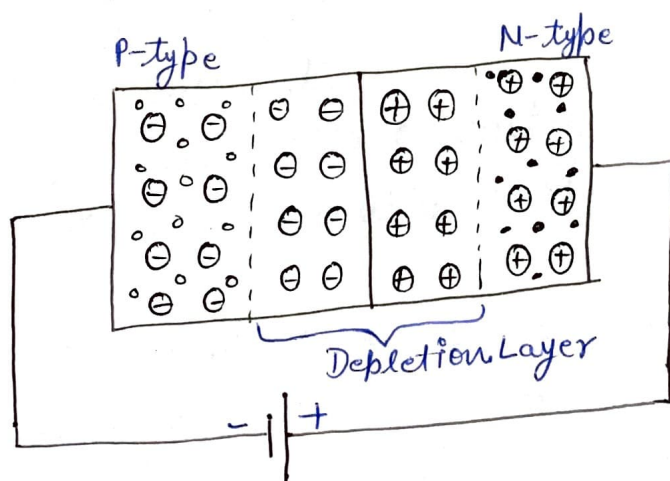 P-type
N-type
Depletion Layer
- +